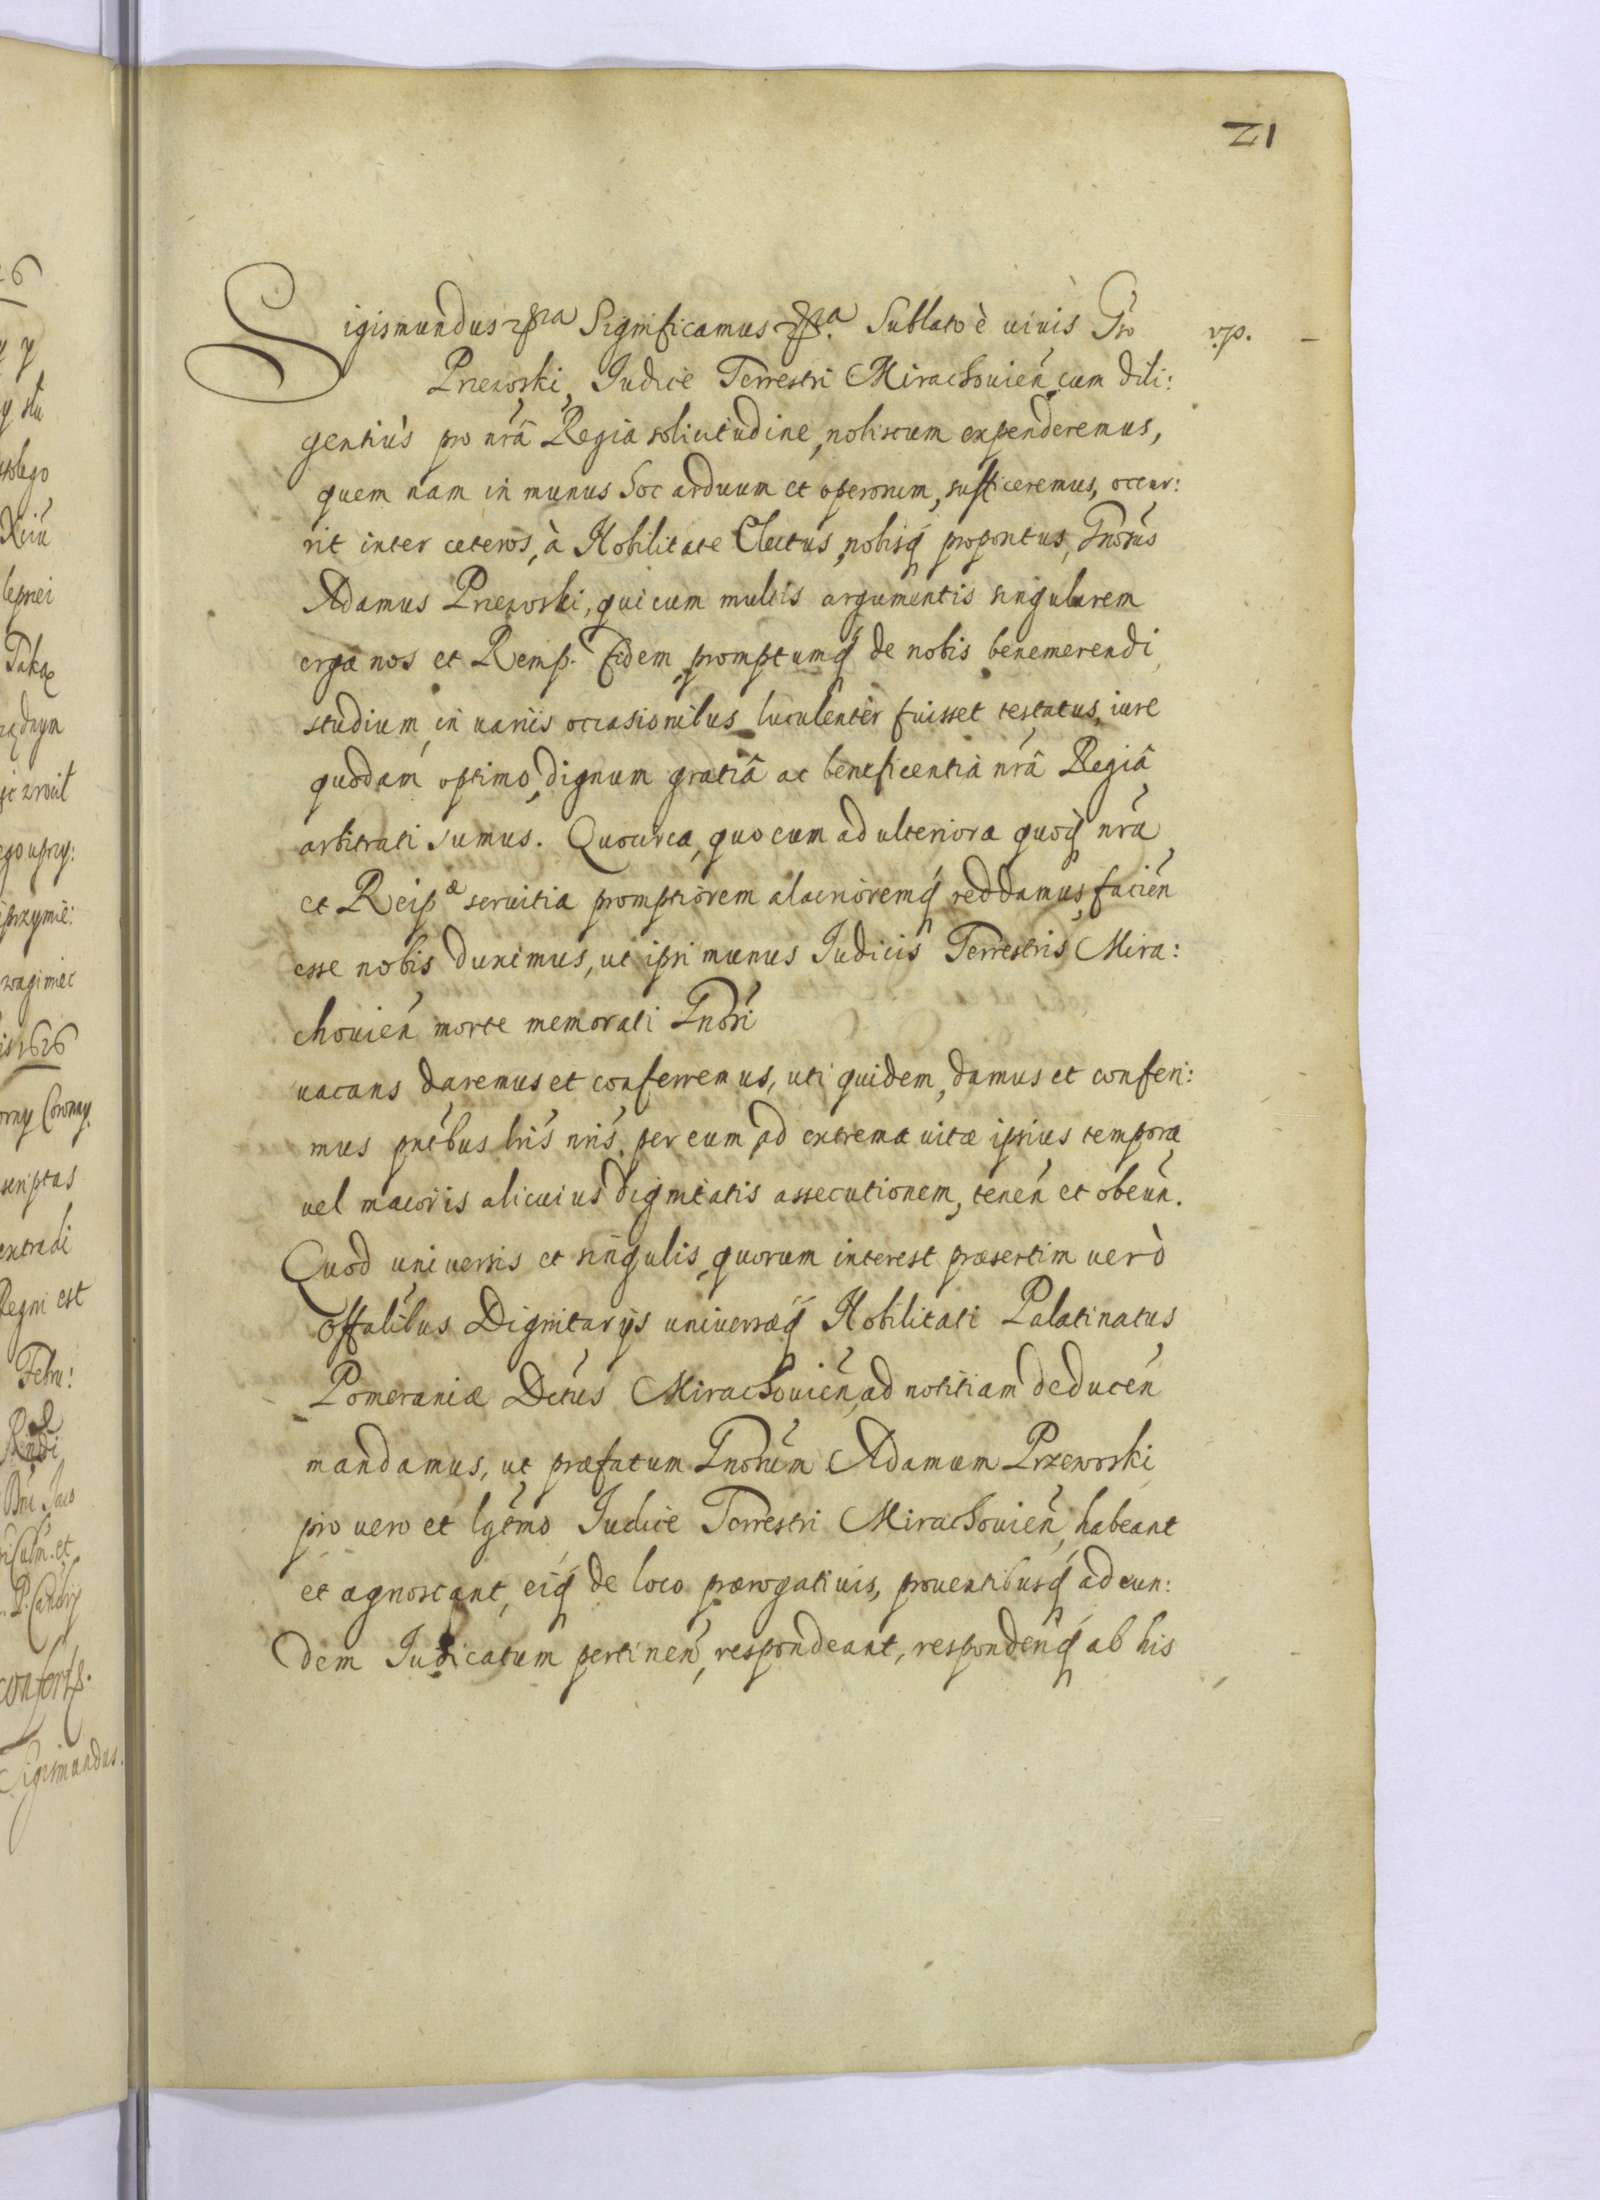 21
Sigismundus etc. Significamus etc. Sublato è uiuis Gñso v.p.
Przewoski, Iudice Terrestri Mirachouień cum dili:
gentius pro nrâ Regia solicitudine, nobiscum expenderemus,
quem nam in munus hoc arduum et operosum, sufficeremus, occur:
rit inter ceteros, à Nobilitate Electus, nobisq́ propositus, Gnosus
Adamus Przewoski, qui cum multis argumentis singularem
erga nos et Remp. fidem, promptumq́ de nobis benemerendi
studium, in uariis occasionibus luculenter fuisset testatus, iure
quodam optimo, dignum gratiâ ac beneficentiâ nrâ Regiâ
arbitrati sumus. Quocirca, quo eum ad ulteriora quoq́ nrã
et Reipᵃ seruitia promptiorem alacrioremq́ reddamus, facień
esse nobis duximus, ut ipsi munus Iudicis Terrestris Mira:
chouień morte memorati Gnosi
uacans daremus et conferremus, uti quidem, damus et conferi:
mus pñtibus lris nris, per eum, ad extrema uitæ ipsius tempora
uel maioris alicuius dignitatis assecutionem, teneń et obeuń.
Quod uniuersis et singulis, quorum interest præsertim uerò
Offalibus Dignitarijs uniuersæq́ Nobilitati Palatinatus
Pomeraniæ Dctus Mirachouień, ad notitiam deduceń
mandamus, ut præfatum Gnosum Adamum Przewoski
pro uero et lgtmo Iudice Terrestri Mirachouień, habeant
et agnoscant, eiq́ de loco prærogatiuis, prouentibusq́ ad eun:
dem Iudicatum pertineń, respondeant, respondenq́ ab his